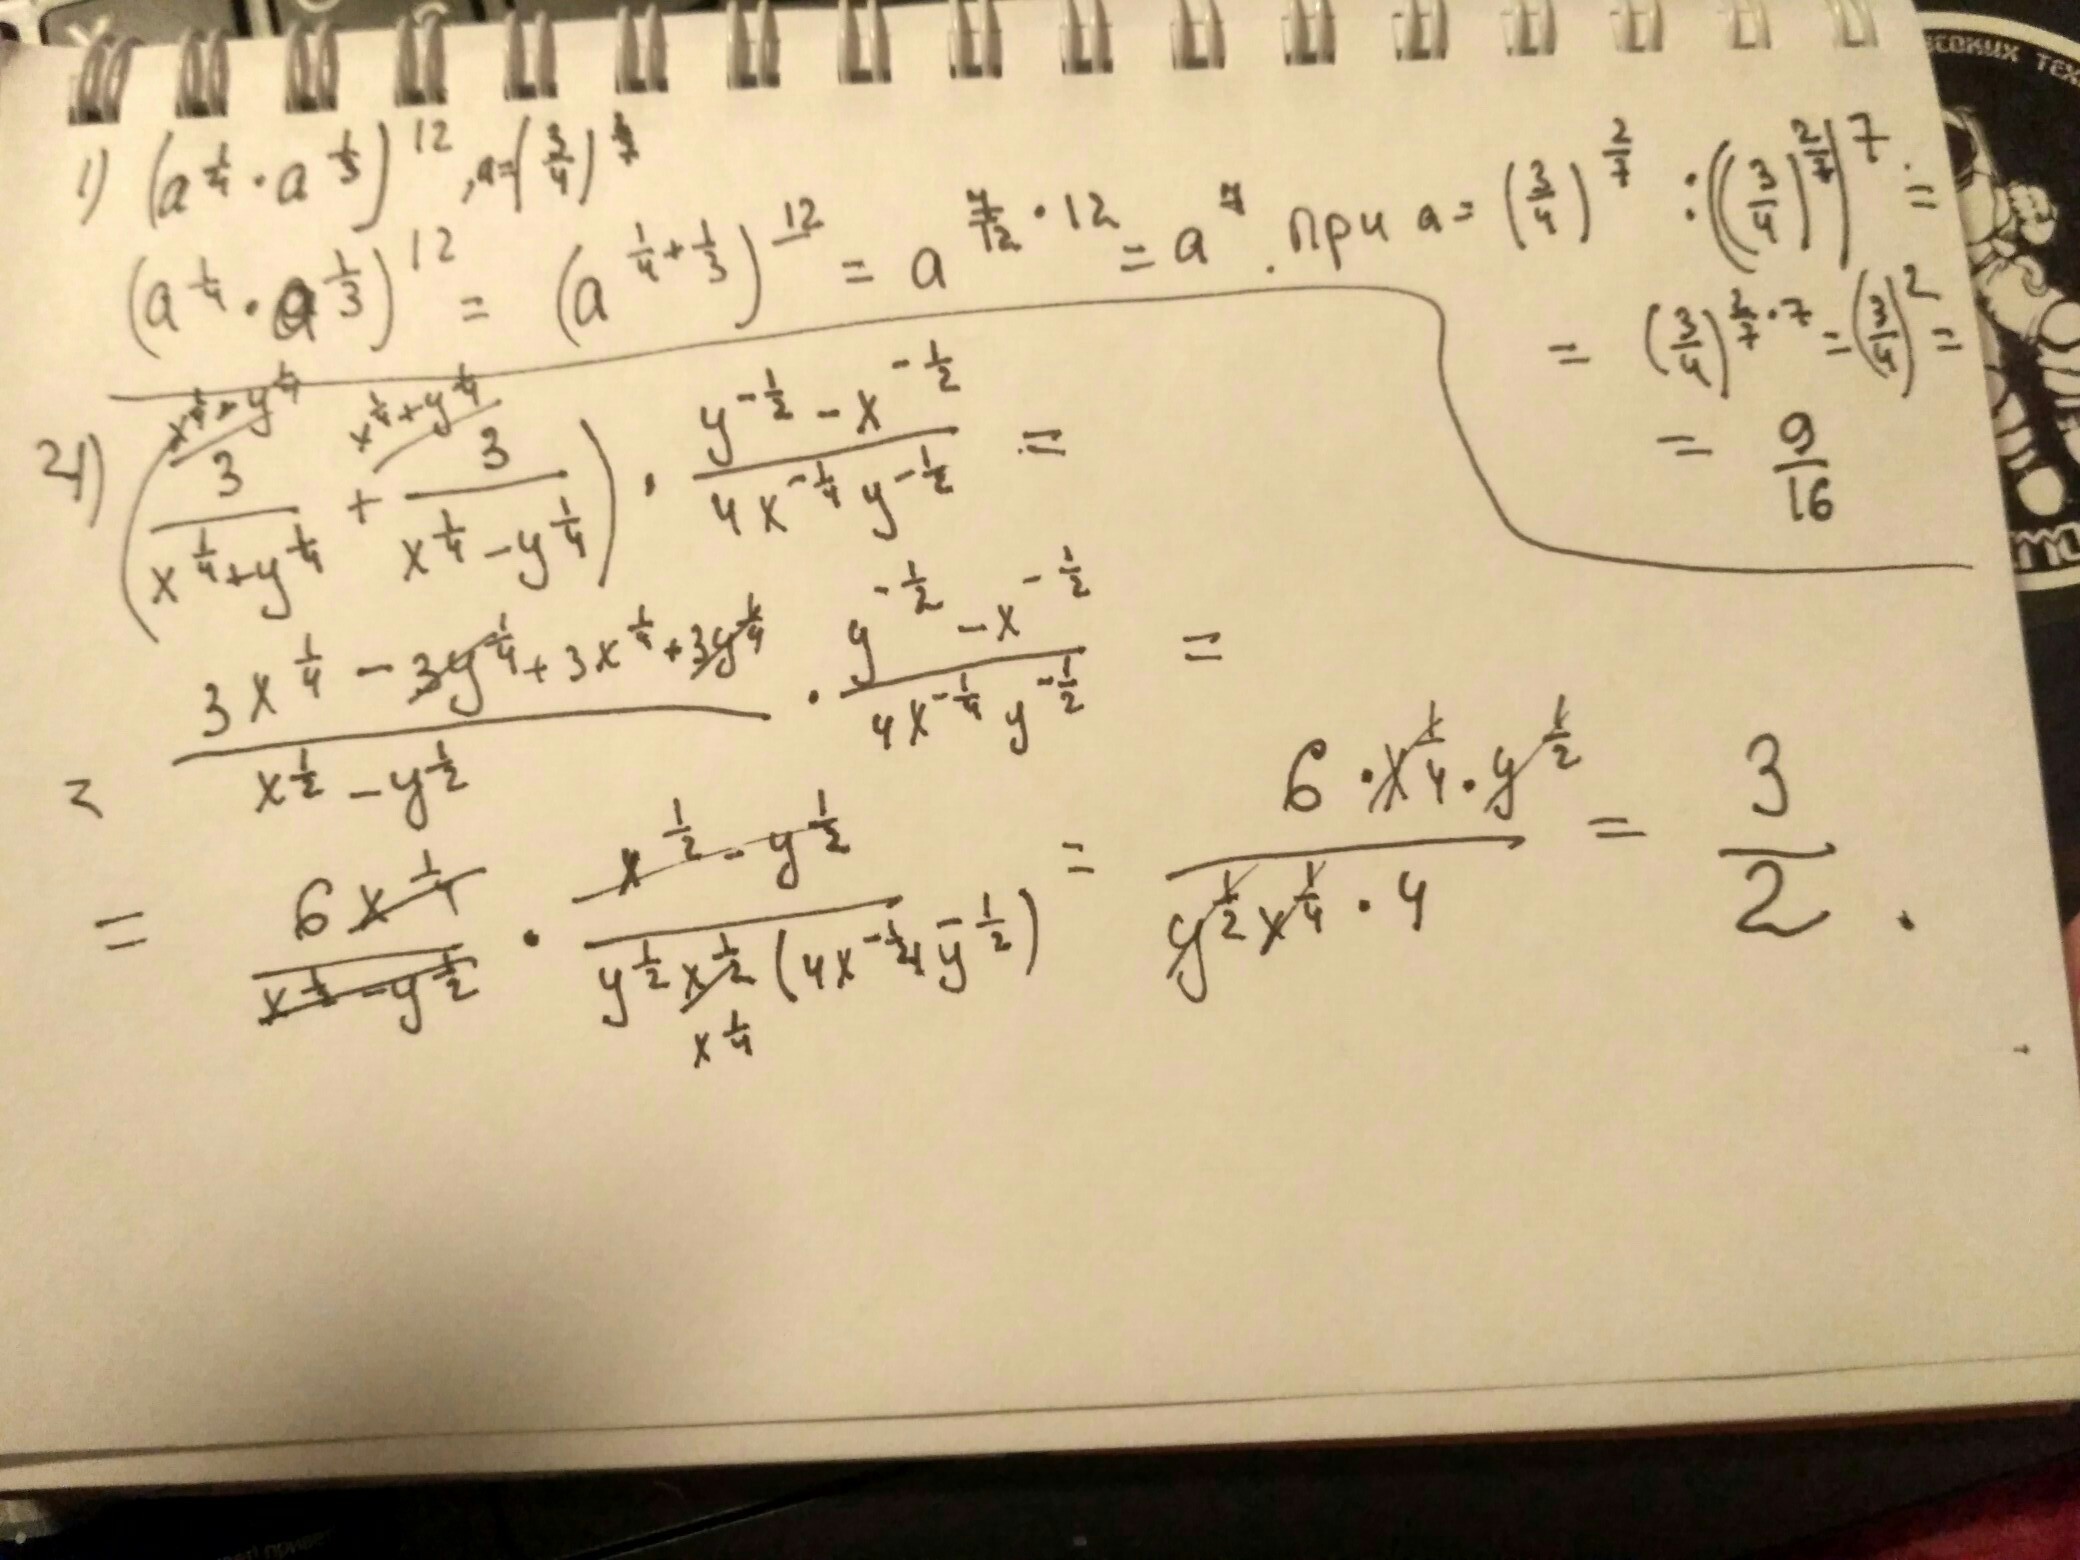 1) (a^{1/4} · a^{1/3})^{12}, a = (3/4)
(a^{1/4} · a^{1/3})^{12} = (a^{1/4 + 1/3})^{12} = a^{7/12 · 12} = a^7 . при a = (3/4)^{2/7} : ((3/4)^{2/7})^7 =
= (3/4)^{2/7 · 7} = (3/4)^2 =
= 9/16
2) (3/(x^{1/4} + y^{1/4}) + 3/(x^{1/4} - y^{1/4})) · (y^{-1/2} - x^{-1/2})/(4x^{-1/4} y^{-1/2}) =
= (3x^{1/4} - 3y^{1/4} + 3x^{1/4} + 3y^{1/4})/(x^{1/2} - y^{1/2}) · (y^{-1/2} - x^{-1/2})/(4x^{-1/4} y^{-1/2}) =
= 6x^{1/4}/(x^{1/2} - y^{1/2}) · (x^{1/2} - y^{1/2})/(y^{1/2} x^{1/2} (4x^{-1/4} y^{-1/2})) = (6 · x^{1/4} · y^{1/2})/(y^{1/2} x^{1/4} · 4) = 3/2 .
x^{1/4}